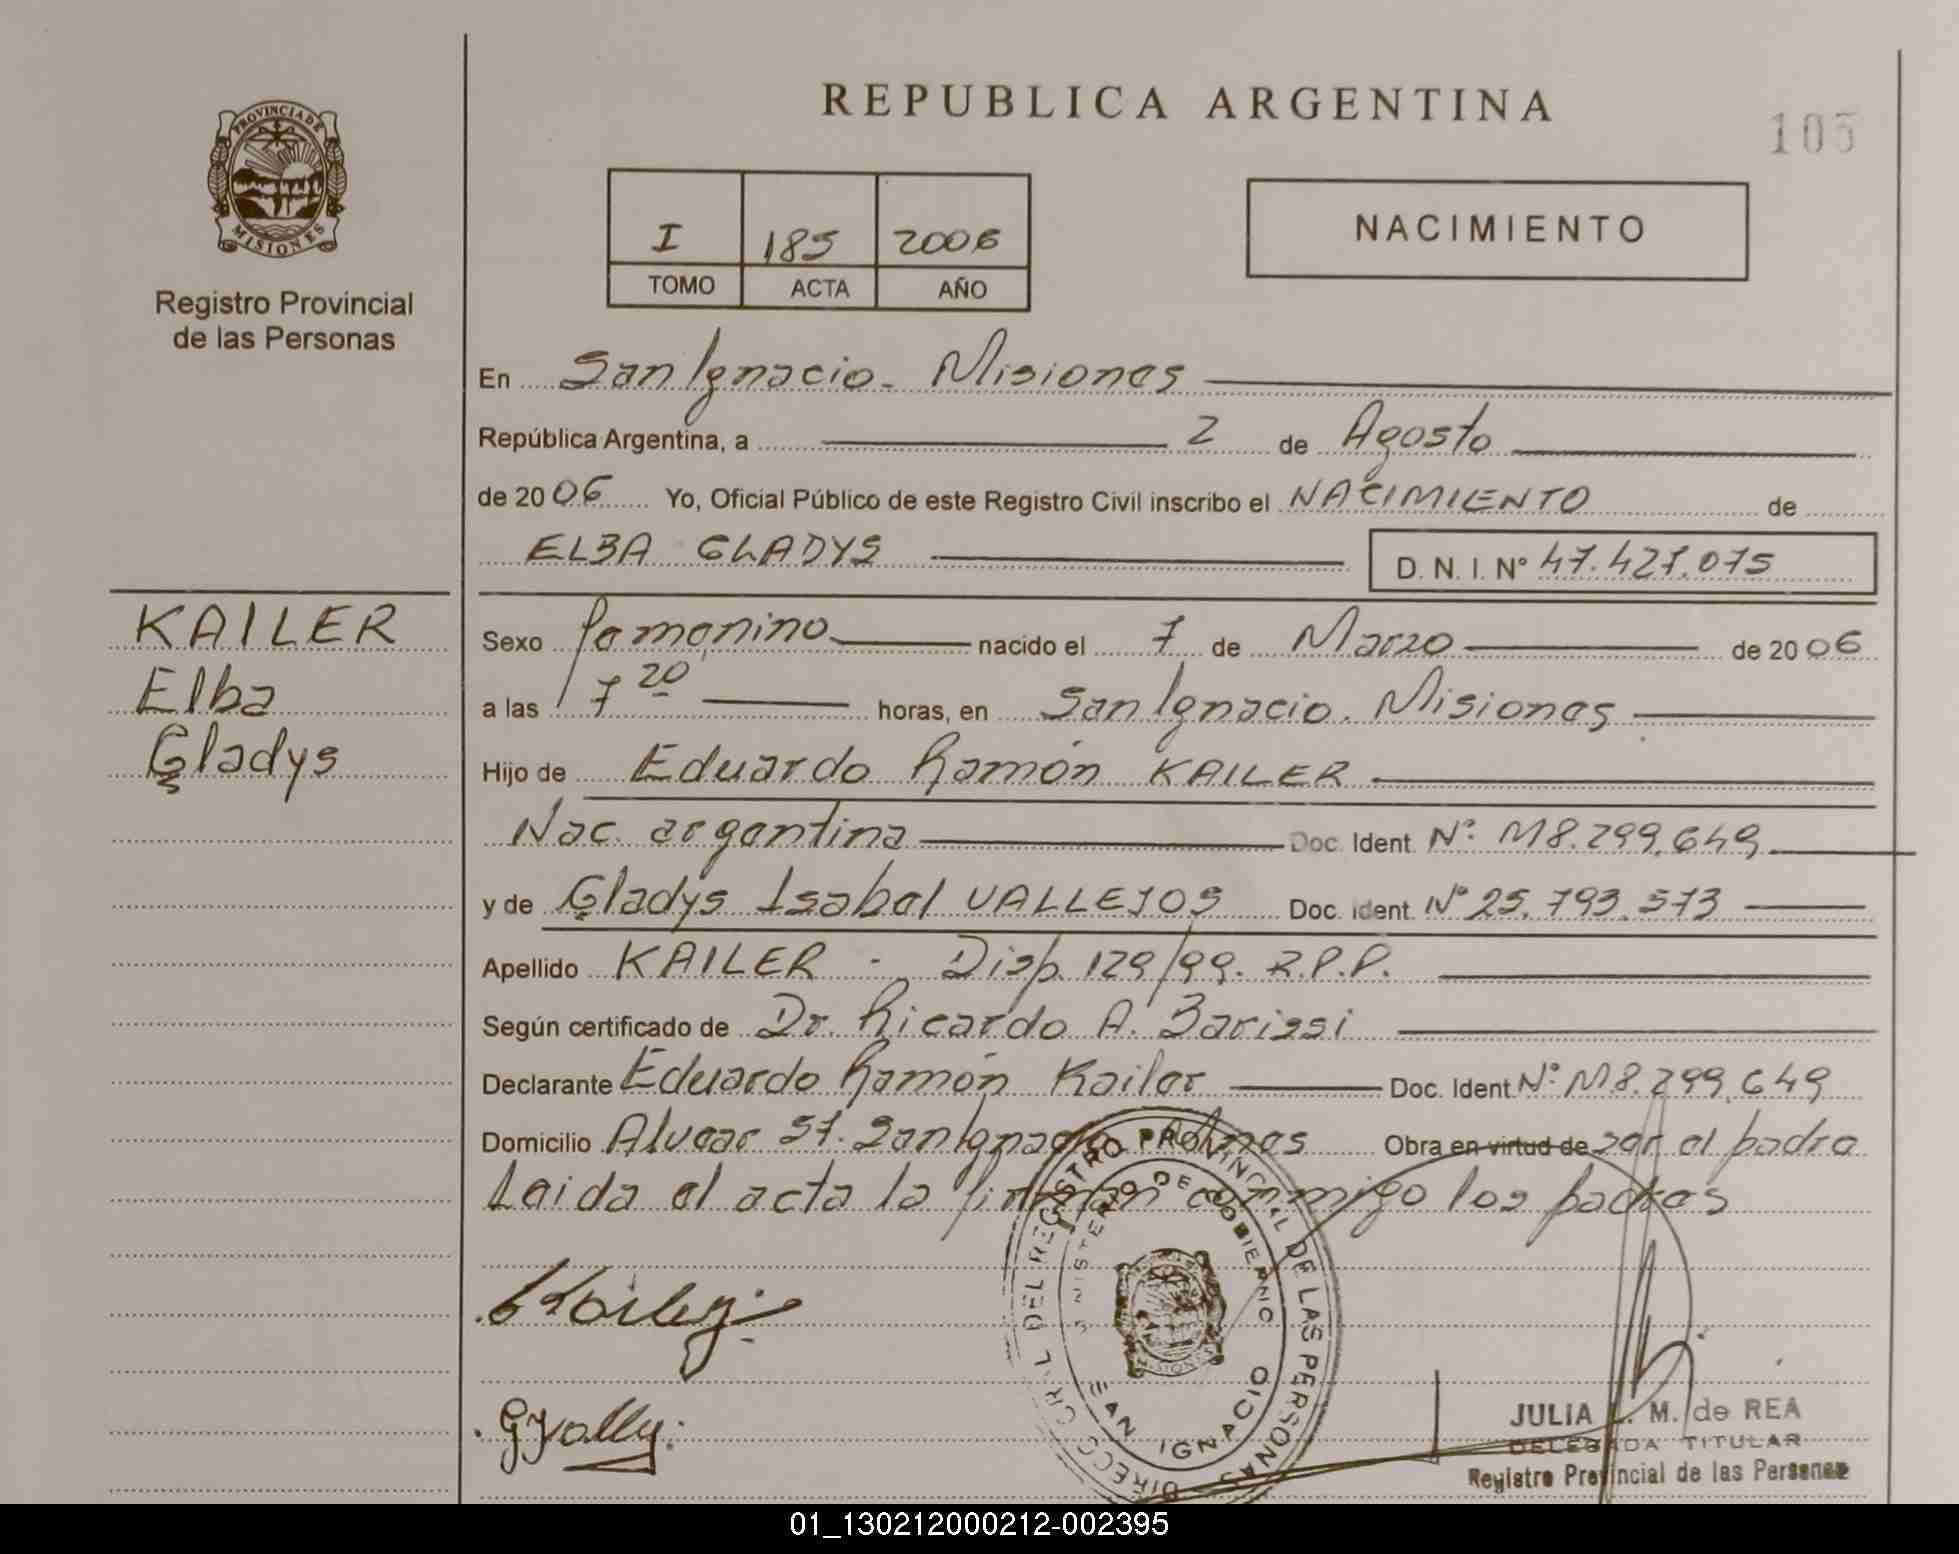 REPUBLICA ARGENTINA
105
PROVINCIA DE
MISIONES
Registro Provincial
de las Personas
I 185 2006
TOMO ACTA AÑO
NACIMIENTO
En San Ignacio - Misiones
República Argentina, a 2 de Agosto
de 2006 Yo, Oficial Público de este Registro Civil inscribo el NACIMIENTO de
ELBA GLADYS D. N. I. N° 47.427.075
KAILER
Elba
Gladys
Sexo femenino nacido el 7 de Marzo de 2006
a las 7 20 horas, en San Ignacio. Misiones
Hijo de Eduardo Ramón KAILER
Nac. argentina Doc. Ident. N° M8.299.649
y de Gladys Isabel VALLEJOS Doc. Ident. N° 25.793.573
Apellido KAILER - Disp. 129/99. R.P.P.
Según certificado de Dr. Ricardo A. Barissi
Declarante Eduardo Ramón Kailer Doc. Ident. N° M8.299.649
Domicilio Alvear 57. San Ignacio Mnes Obra en virtud de ser el padre
Leida el acta la firman conmigo los padres
DIRECC GRAL DEL REGISTRO PROVINCIAL DE LAS PERSONAS
MINISTERIO DE GOBIERNO
SAN IGNACIO
MISIONES
JULIA M. de REA
DELEGADA TITULAR
Registro Provincial de las Personas
01_130212000212-002395